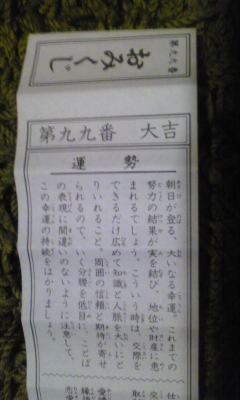 第九九番
おみくじ
第九九番 大吉
運勢
朝日が登る、大いなる幸運。これまでの
努力の結果が実を結び、地位や財産に恵
まれるでしょう。こういう時は、交際を
できるだけ広めて知識と人脈を大いにと
りいれること。周囲の信頼と期待が寄せ
られるので、いく分腰を低目に、ことば
の表現に間違いのないように注意して、
この幸運の持続をはかりましょう。